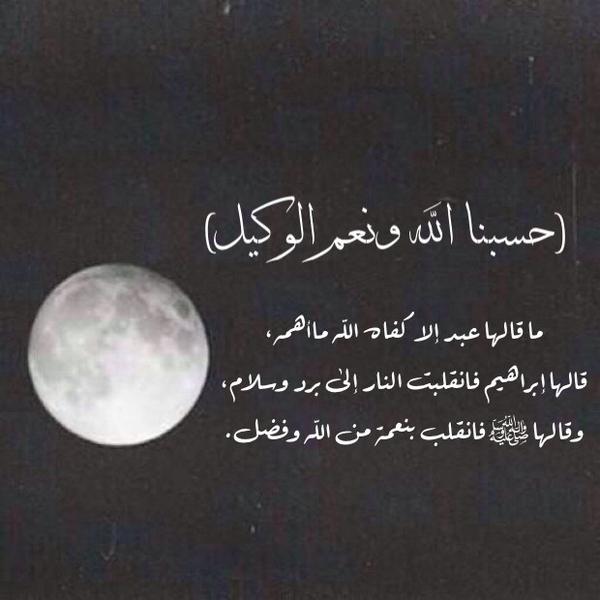 (حسبنا الله ونعم الوكيل)
ما قالها عبد إلا كفاه الله ما أهمه،
قالها إبراهيم فانقلبت النار إلى برد وسلام،
وقالها ﷺ فانقلب بنعمة من الله وفضل.